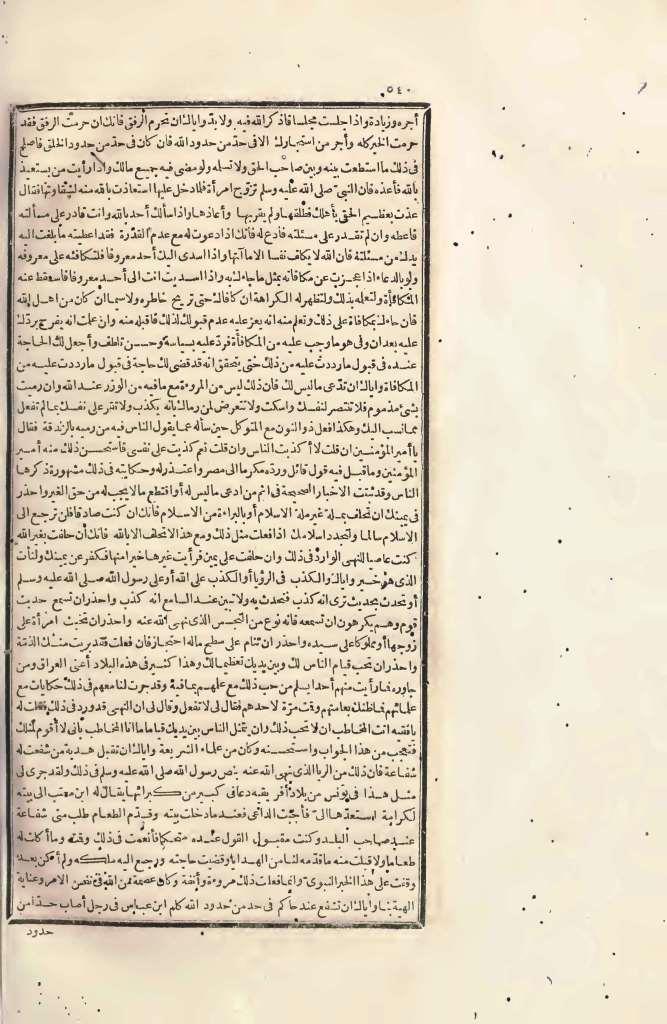 ٥٤٠
أجره وزيادة واذا جلست مجلسا فاذكر الله فيه ولا بدّ واياك ان تحرم الرفق فانك ان حرمت الرفق فقد
حرمت الخير كله وأجر من استجارك الا فى حدّ من حدود الله فان كان فى حدّ من حدود الخلق فاصلح
فى ذلك ما استطعت بينه وبين صاحب الحق ولا تسلمه ولو مضى فيه جميع مالك واذا رأيت من يستعيذ
بالله فأعذه فان النبى صلى الله عليه وسلم تزوّج امرأة فلما دخل عليها استعاذت بالله منه لشقاوتها فقال
عذت بعظيم الحقى بأهلك فطلقها ولم يقربها وأعاذها واذا سألك أحد بالله وانت قادر على مسألته
فاعطه وان لم تقدر على مسئلته فادع له فانك اذا دعوت له مع عدم القدرة فقد اعطيته ما بلغت اليه
يدك من مسئلته فان الله لا يكلف نفسا الا ما آتاها واذا اسدى اليك أحد معروفا فلتكافئه على معروفه
ولو بالدعاء اذا عجزت عن مكافأته بمثل ما جاءك به واذا اسديت انت الى أحد معروفا فاسقط عنه
المكافأة ولتعلمه بذلك ولتظهر له الكراهة ان كافأك حتى تريح خاطره ولا سيما ان كان من اهل الله
فان جاءك بمكافأة على ذلك وتعلم منه انه يعز عليه عدم قبولك لذلك فاقبله منه وان علمت انه يفرح بردّك
عليه بعد ان وفى هو ما وجب عليه من المكافأة فردّ عليه بسياسة وحسن تلطف وأجعل لك الحاجة
عنده فى قبول ما رددت عليه من ذلك حتى يتحقق انه قد قضى لك حاجة فى قبول ما رددت عليه من
المكافأة واياك ان تدّعى ما ليس لك فان ذلك ليس من المروءة مع ما فيه من الوزر عند الله وان رميت
بشئ مذموم فلا تنتصر لنفسك واسكت ولا تتعرض لمن رماك بأنه يكذب ولا تقر على نفسك بما لم تفعل
مما نسب اليك وهكذا فعل ذو النون مع المتوكل حين سأله عما يقول الناس فيه من رميه بالزندقة فقال
يا أمير المؤمنين ان قلت لا أكذبت الناس وان قلت نعم كذبت على نفسى فاستحسن ذلك منه أمير
المؤمنين وما قبل فيه قول قائل وردّه مكرما الى مصر واعتذر له وحكايته فى ذلك مشهورة ذكرها
الناس وقد ثبتت الاخبار الصحيحة فى اثم من ادعى ما ليس له أو اقتطع ما لا يجب له من حق الغير واحذر
فى يمينك ان تحلف بملة غير ملة الاسلام أو بالبراءة من الاسلام فانك ان كنت صادقا فلن ترجع الى
الاسلام سالما ولتجدد اسلامك اذا فعلت مثل ذلك ومع هذا الا تحلف الا بالله فانك أن حلفت بغير الله
كنت عاصيا للنهى الوارد فى ذلك وان حلفت على يمين فرأيت غيرها خيرا منها فكفر عن يمينك ولتأت
الذى هو خير واياك والكذب فى الرؤيا أو الكذب على الله أو على رسول الله صلى الله عليه وسلم
أو تحدث بحديث ترى انه كذب فتحدث به ولا تبين عند السامع انه كذب واحذر ان تسمع حديث
قوم وهم يكرهون ان تسمعه فانه نوع من التجسس الذى نهى الله عنه واحذر ان تخبث امرأة على
زوجها أو مملوكا على سيده واحذر ان تنام على سطح ماله احتجاز فان فعلت فقد برئت منك الذمّة
واحذر ان تحب قيام الناس لك وبين يديك تعظيما لك وهذا كثير فى هذه البلاد أعنى العراق ومن
جاوره فما رأيت منهم أحدا يسلم من حب ذلك مع علمهم بما فيه وقد جرت لنا معهم فى ذلك حكايات مع
علمائهم فما ظنك بعامتهم وقت مرّة لاحدهم فقال لى لا تفعل وقال لى ان النهى قد ورد فى ذلك فقلت له
يا فقيه انت المخاطب ان لا تحب ذلك وان يتمثل الناس بين يديك قياما ما انا المخاطب بأنى لا أقوم لمثلك
فتعجب من هذا الجواب واستحسنه وكان من علماء الشريعة واياك ان تقبل هدية من شفعت له
شفاعة فان ذلك من الربا الذى نهى الله عنه بنص رسول الله صلى الله عليه وسلم فى ذلك ولقد جرى لى
مثل هذا فى تونس من بلاد أفريقية دعانى كبير من كبرائها يقال له ابن معتب الى بيته
لكرامة استعدّها لى فأجبت الداعى فعند ما دخلت بيته وقدّم الطعام طلب منى شفاعة
عند صاحب البلد وكنت مقبول القول عنده متحكما فأنعمت فى ذلك وقمت وما أكلت له
طعاما ولا قبلت منه ما قدّمه لنا من الهدايا وقضيت حاجته ورجع اليه ملكه ولم أكن بعد
وقفت على هذا الخبر النبوى وانما فعلت ذلك مروءة وأنفة وكان عصمة من الله فى نفس الامر وعناية
الهية بنا واياك ان تشفع عند حاكم فى حد من حدود الله كلم ابن عباس فى رجل أصاب حدّا من
حدود